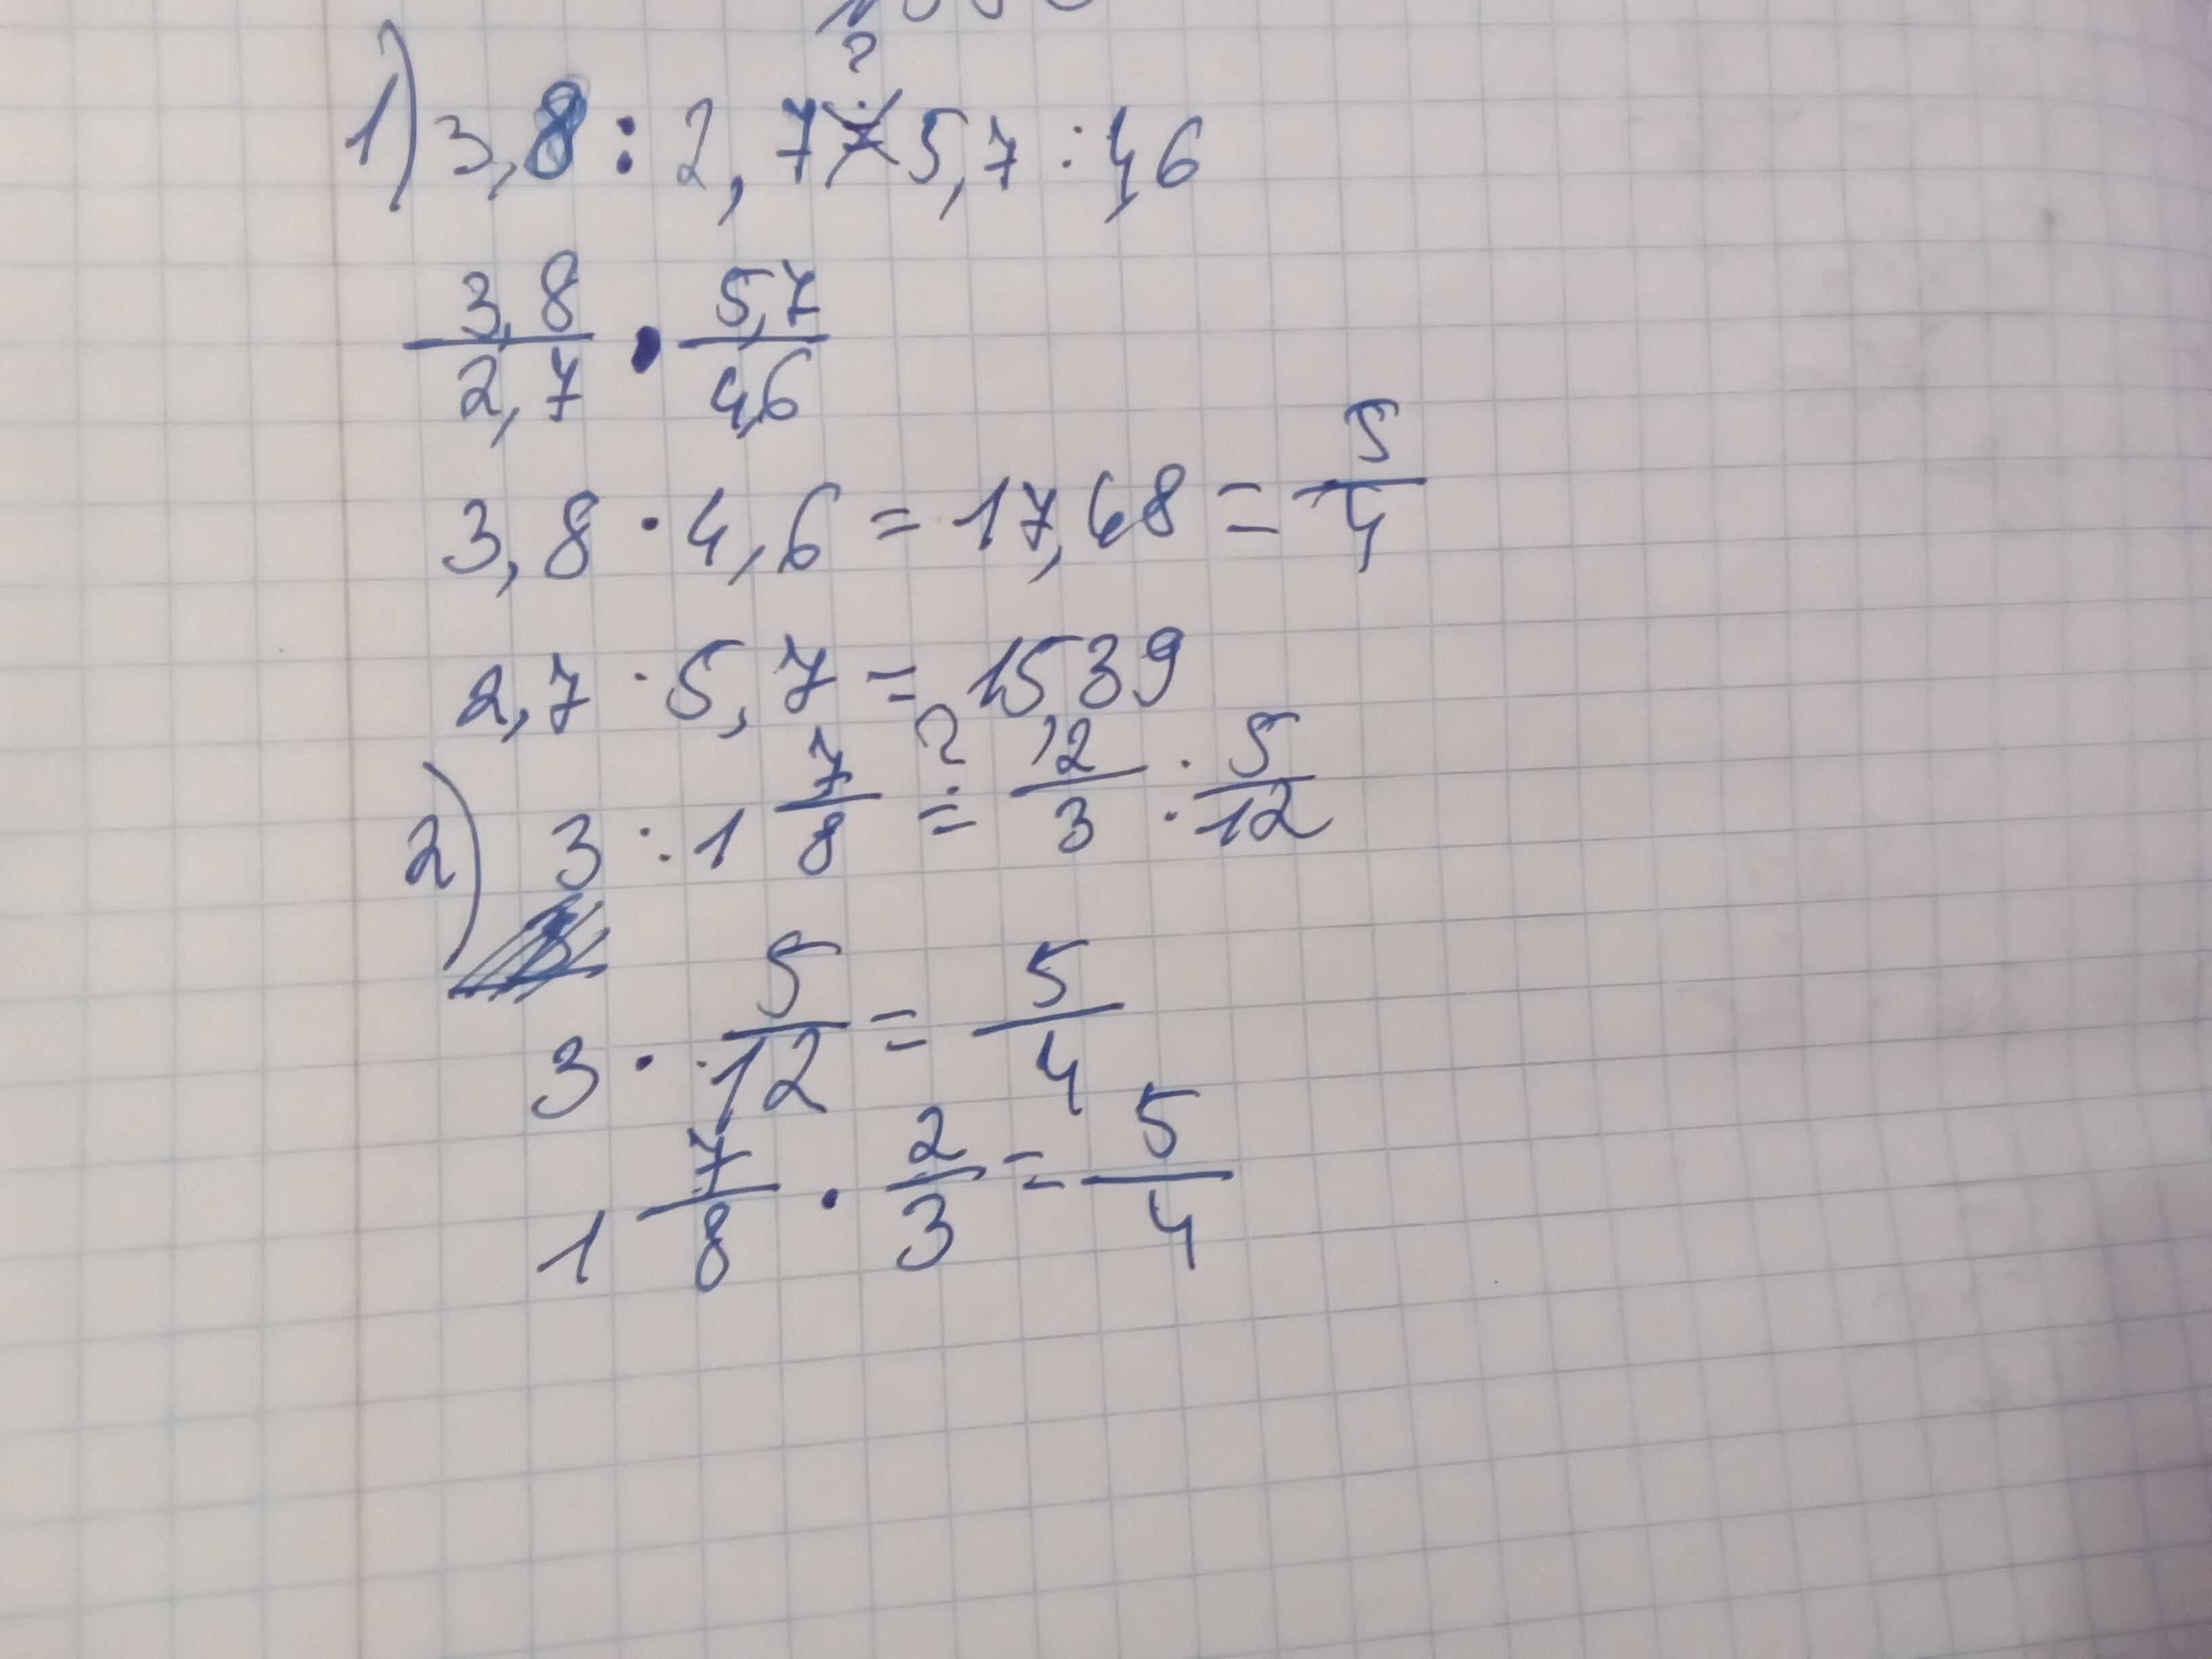 ?
1) 3,8 : 2,7 = 5,7 : 4,6
3,8/2,7 · 5,7/4,6
3,8 · 4,6 = 17,48 = 5/4
2,7 · 5,7 = 15,39
2) 3 : 1 7/8 ?= 2/3 : 5/12
3 · 5/12 = 5/4
1 7/8 · 2/3 = 5/4